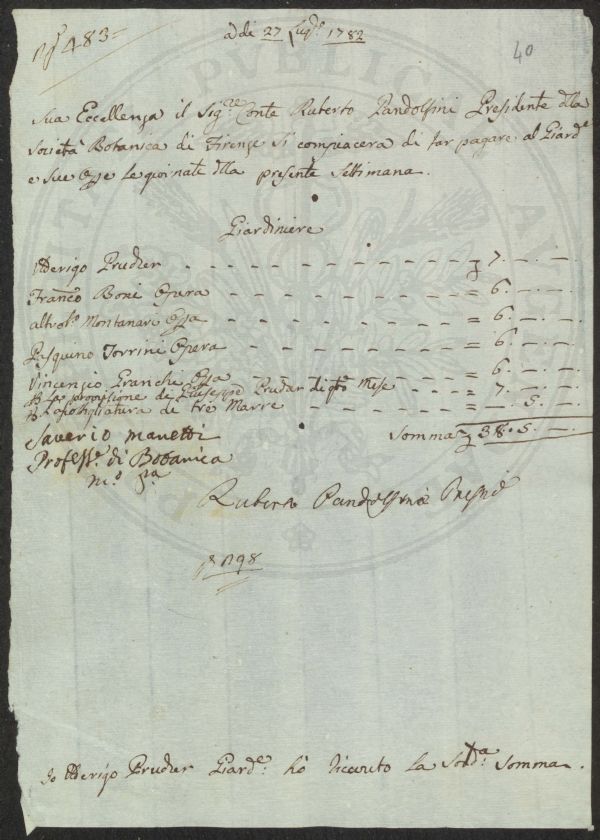 N° 483
40
a di 27 Lug.° 1782
Sua Eccellenza il Sig.re Conte Ruberto Pandolfini Presidente dlla
Società Botanica di Firenze si compiacera di far pagare al Giard.e
e sue Opre le giornate dlla presente Settimana.
Giardiniere
Ulderigo Prucker - - - - - - 7. - . -
Franco Boni Opera - - - - - - = 6. - . -
altro Montanari Opa - - - - - - = 6. - . -
Pasquino Torrini Opera - - - - - - = 6. - . -
Vincenzio Granchi Opa - - - - - - = 6. - . -
P La provisione de Giuseppe Prucker di qto Mese - - = 7. - . -
P Aguzzatura de tre Marre - - - - - - = - . 5. -
Somma 38. 5. -
Saverio Manetti
Profess.e di Botanica
m.o p.a
Ruberto Pandolfini Presid.e
N° 98
Io Ulderigo Prucker Giard.e hò ricevuto la Sod.a Somma.